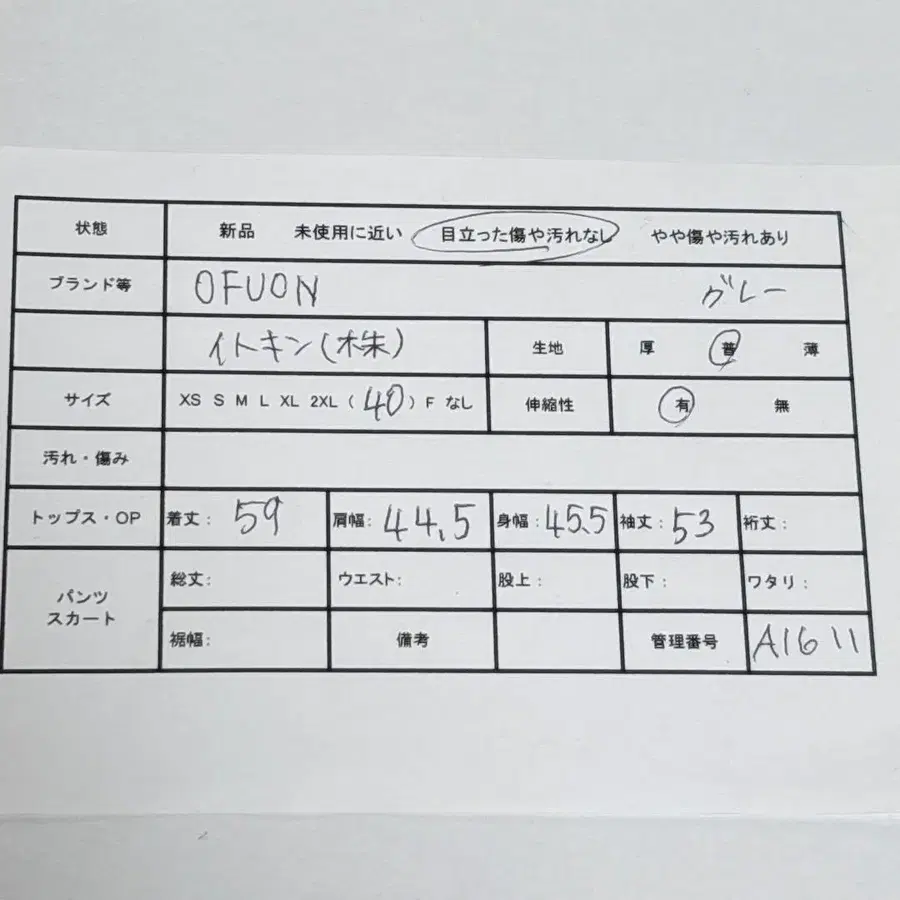 状態 新品 未使用に近い 目立った傷や汚れなし やや傷や汚れあり
ブランド等 OFUON グレー
イトキン(株) 生地 厚 普 薄
サイズ XS S M L XL 2XL ( 40 ) F なし 伸縮性 有 無
汚れ・傷み
トップス・OP 着丈: 59 肩幅: 44.5 身幅: 45.5 袖丈: 53 裄丈:
パンツ
スカート
総丈: ウエスト: 股上: 股下: ワタリ:
裾幅: 備考 管理番号 A1611